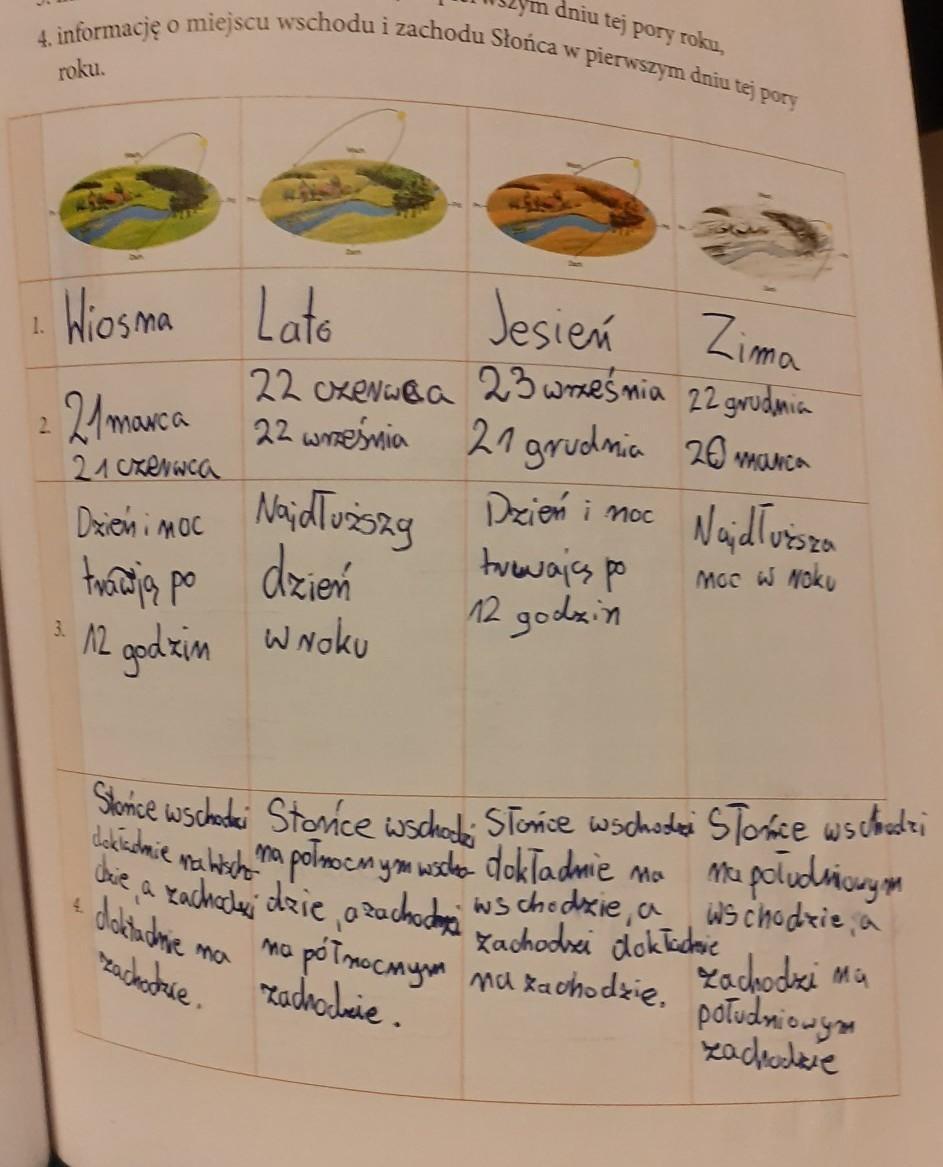 wszym dniu tej pory roku,
4. informację o miejscu wschodu i zachodu Słońca w pierwszym dniu tej pory
roku.
1. Wiosna
Lato
Jesień
Zima
2. 21 marca
21 czerwca
22 czerwca
22 września
23 września
21 grudnia
22 grudnia
20 marca
3. Dzień i noc
trwają po
12 godzin
Najdłuższy
dzień
w roku
Dzień i noc
trwają po
12 godzin
Najdłuższa
noc w roku
4. Słońce wschodzi
dokładnie na wscho-
dzie, a zachodzi
dokładnie na
zachodzie.
Słońce wschodzi
na połnocnym wscho-
dzie, a zachodzi
na północnym
zachodzie.
Słońce wschodzi
dokładnie na
wschodzie, a
zachodzi dokładnie
na zachodzie.
Słońce wschodzi
na południowym
wschodzie, a
zachodzi na
południowym
zachodzie